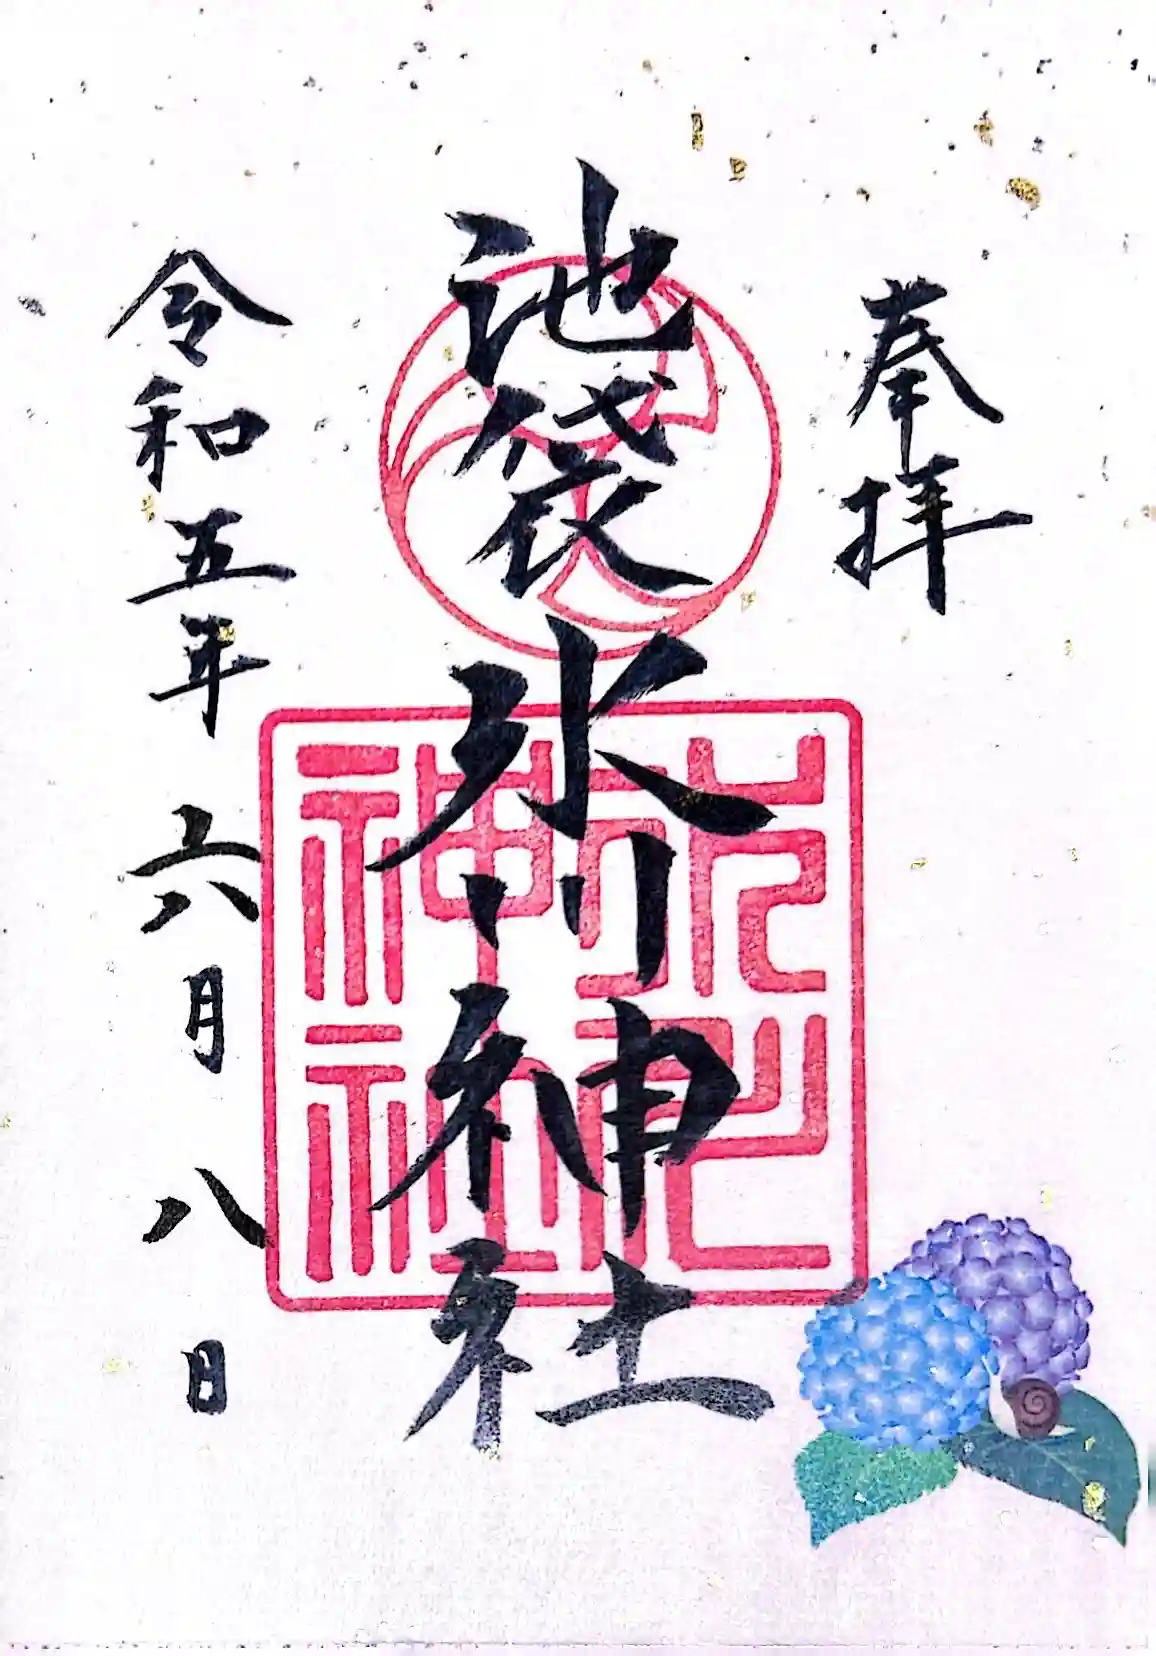 奉拝
池袋氷川神社
令和五年六月八日